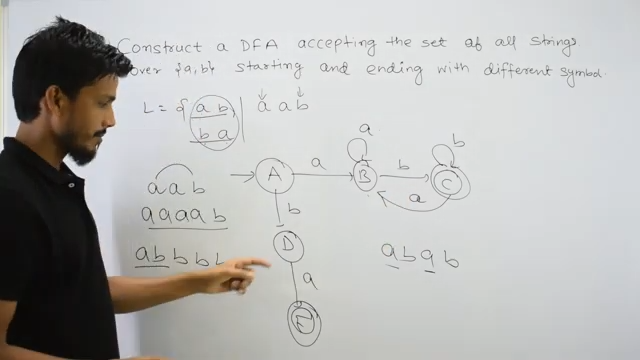 Construct a DFA accepting the set of all strings
over {a,b} starting and ending with different symbol.
L = { a b, | a a b
b a |
a
b
a a b
A
a
B
b
C
a
a a a a b
b
a b b b b
D
a b a b
a
E